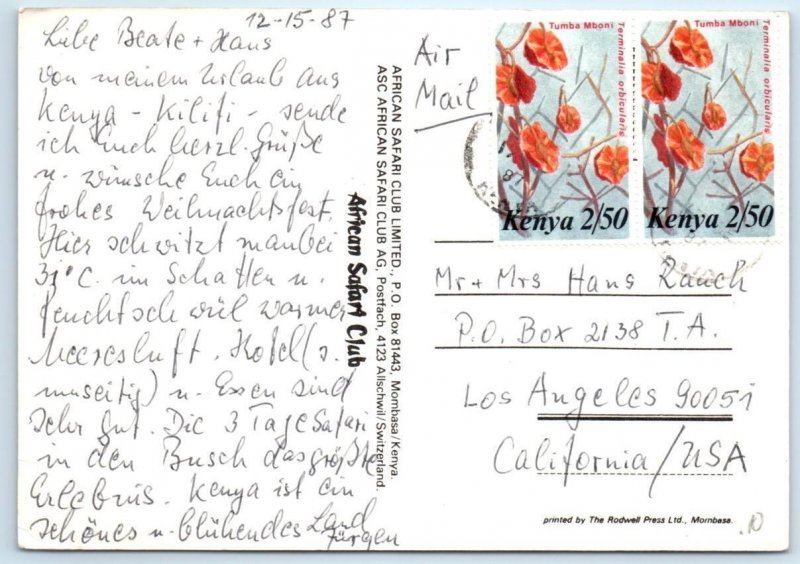 12-15-87
Liebe Beate + Hans
von meinem Urlaub aus
Kenya - Kilifi - sende
ich Euch herzl. Grüße
u. wünsche Euch ein
frohes Weihnachtsfest.
Hier schwitzt man bei
°C. im Schatten u.
feuchtschwül warmer
Meeresluft. Hotel (s.
umseitig) u. Essen sind
sehr gut. Die 3 Tage Safari
in den Busch das größte
Erlebnis. Kenya ist ein
schönes u. blühendes Land
Jürgen
African Safari Club
AFRICAN SAFARI CLUB LIMITED., P.O. Box 81443, Mombasa/Kenya.
ASC AFRICAN SAFARI CLUB AG, Postfach, 4123 Allschwil/Switzerland.
Air
Mail
Tumba Mboni
Terminalia orbicularis
Kenya 2/50
Tumba Mboni
Terminalia orbicularis
Kenya 2/50
Mr + Mrs Hans Rauch
P.O. Box 2138 T.A.
Los Angeles 90051
California/USA
printed by The Rodwell Press Ltd., Mombasa.